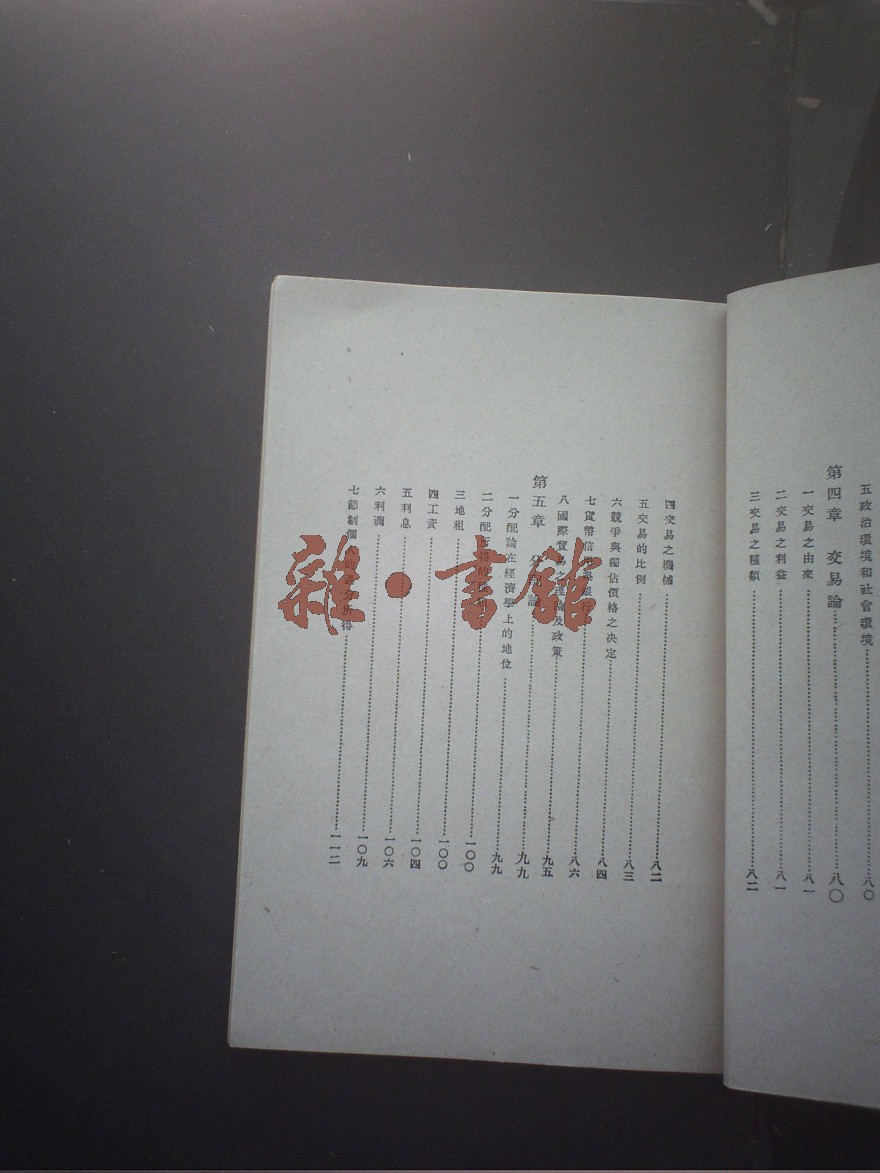 五政治環境和社會環境……八〇
第四章 交易論……八〇
一交易之由來……八一
二交易之利益……八一
三交易之種類……八二
四交易之機械……八二
五交易的比例……八三
六競爭與獨佔價格之决定……八四
七貨幣信用與銀行……八六
八國際貿易之理論及政策……九五
第五章 分配論……九九
一分配論在經濟學上的地位……九九
二分配所得的……一〇〇
三地租……一〇〇
四工資……一〇四
五利息……一〇六
六利潤……一〇九
七節制個人的所得……一一二
雜·書館